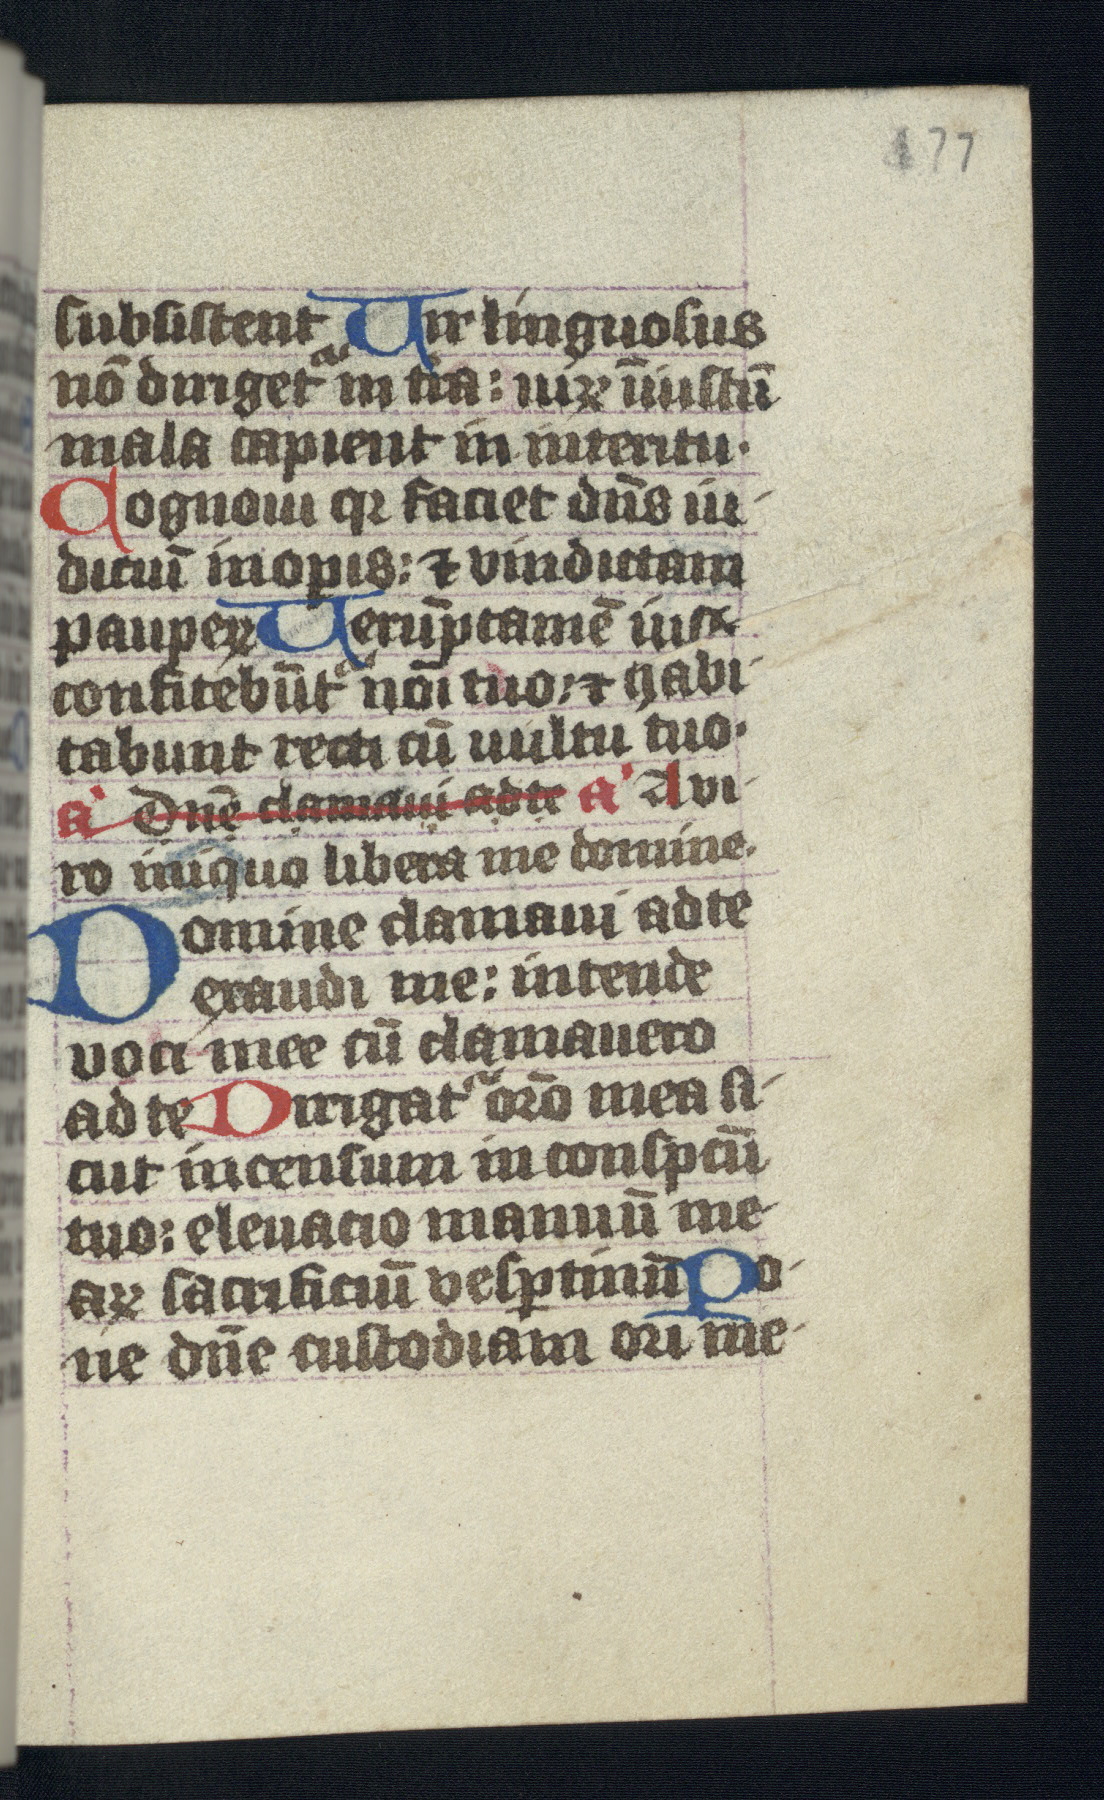 177
subsistent Uir linguosus
nō dirigetᵘʳ in tr̄a: uiꝝ īiustū
mala capient in interitu.
Cognoui qꝛ faciet dn̄s iu-
diciū inopis: ⁊ vindictam
paupeꝝ Uerūptamē iusti
confitebūtᵘʳ nōi tuo: ⁊ habi-
tabunt recti cū uultu tuo.
a' Dn̄e clamaui ad te a' A vi-
ro iniquo libera me domine.
Domine clamaui ad te
exaudi me: intende
voci mee cū clamauero
ad te Dirigatᵘʳ orō mea si-
cut incensum in conspc̄u
tuo: eleuacio manuū me-
aꝝ sacrificiū vesptinū Po-
ne dn̄e custodiam ori me-